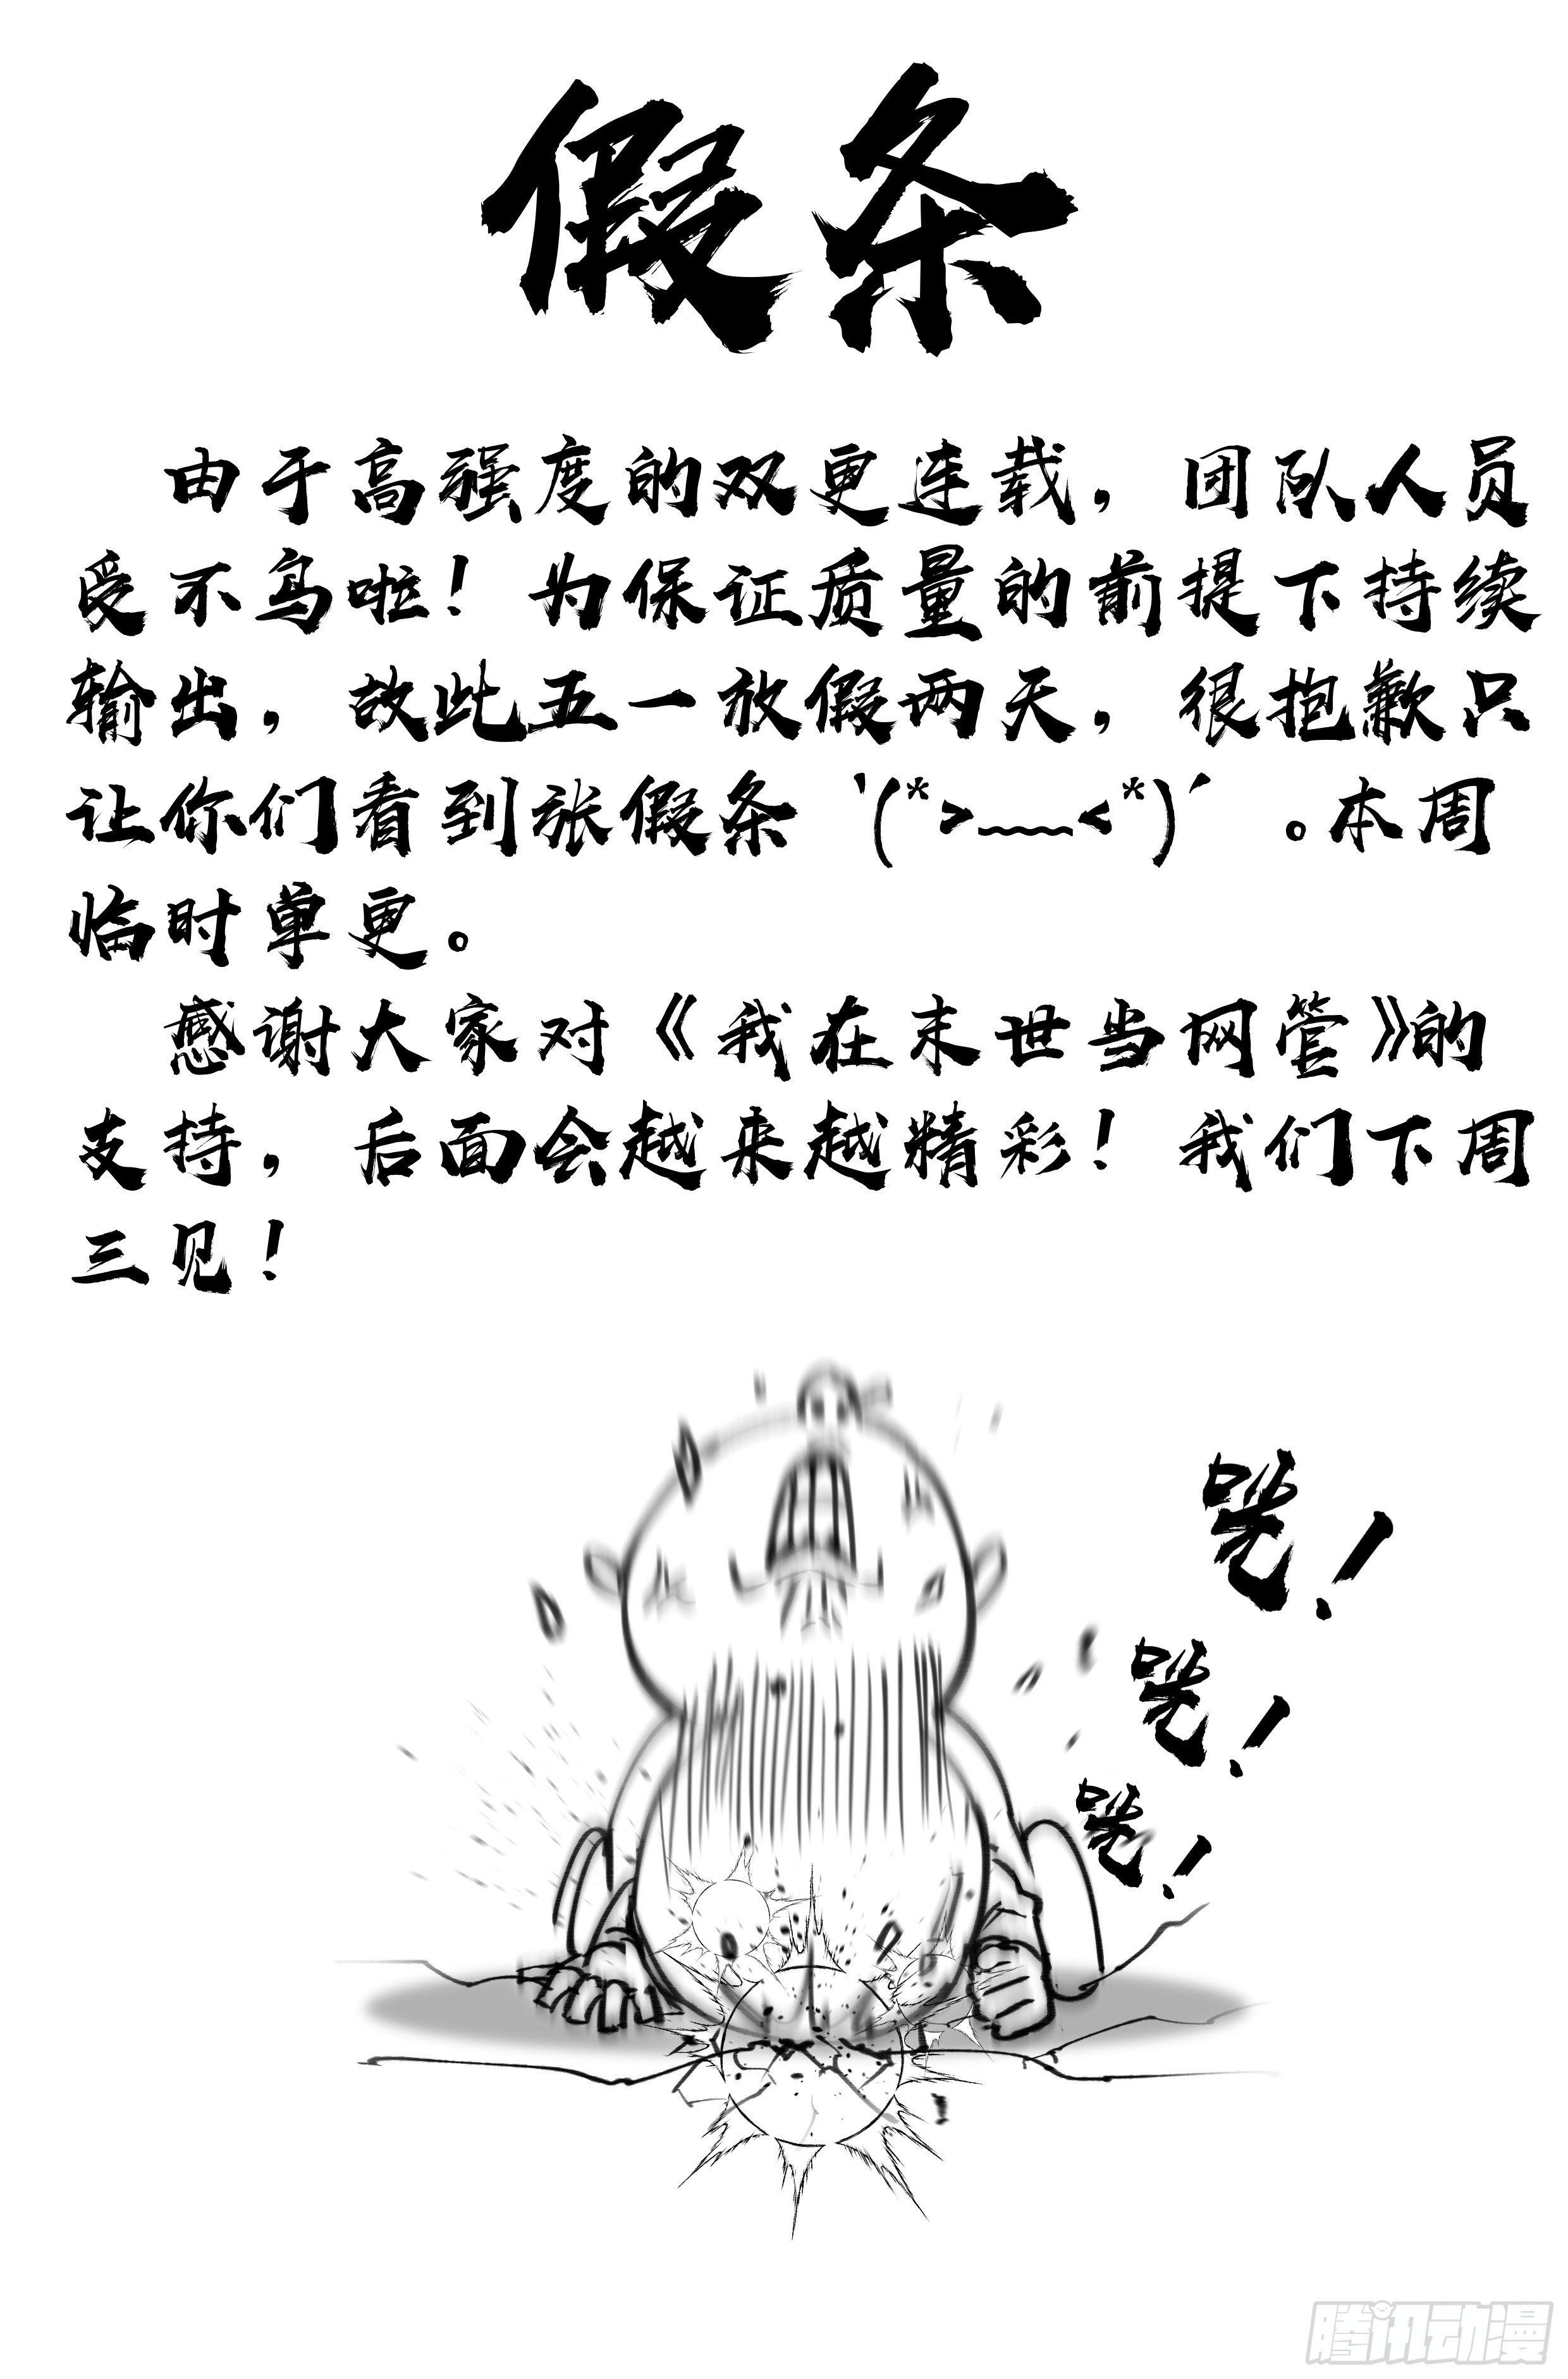 假条
由于高强度的双更连载，团队人员
受不鸟啦！为保证质量的前提下持续
输出，故此五一放假两天，很抱歉只
让你们看到张假条‵(*>﹏<*)′。本周
临时单更。
感谢大家对《我在末世当网管》的
支持，后面会越来越精彩！我们下周
三见！
咣！
咣！
咣！
腾讯动漫